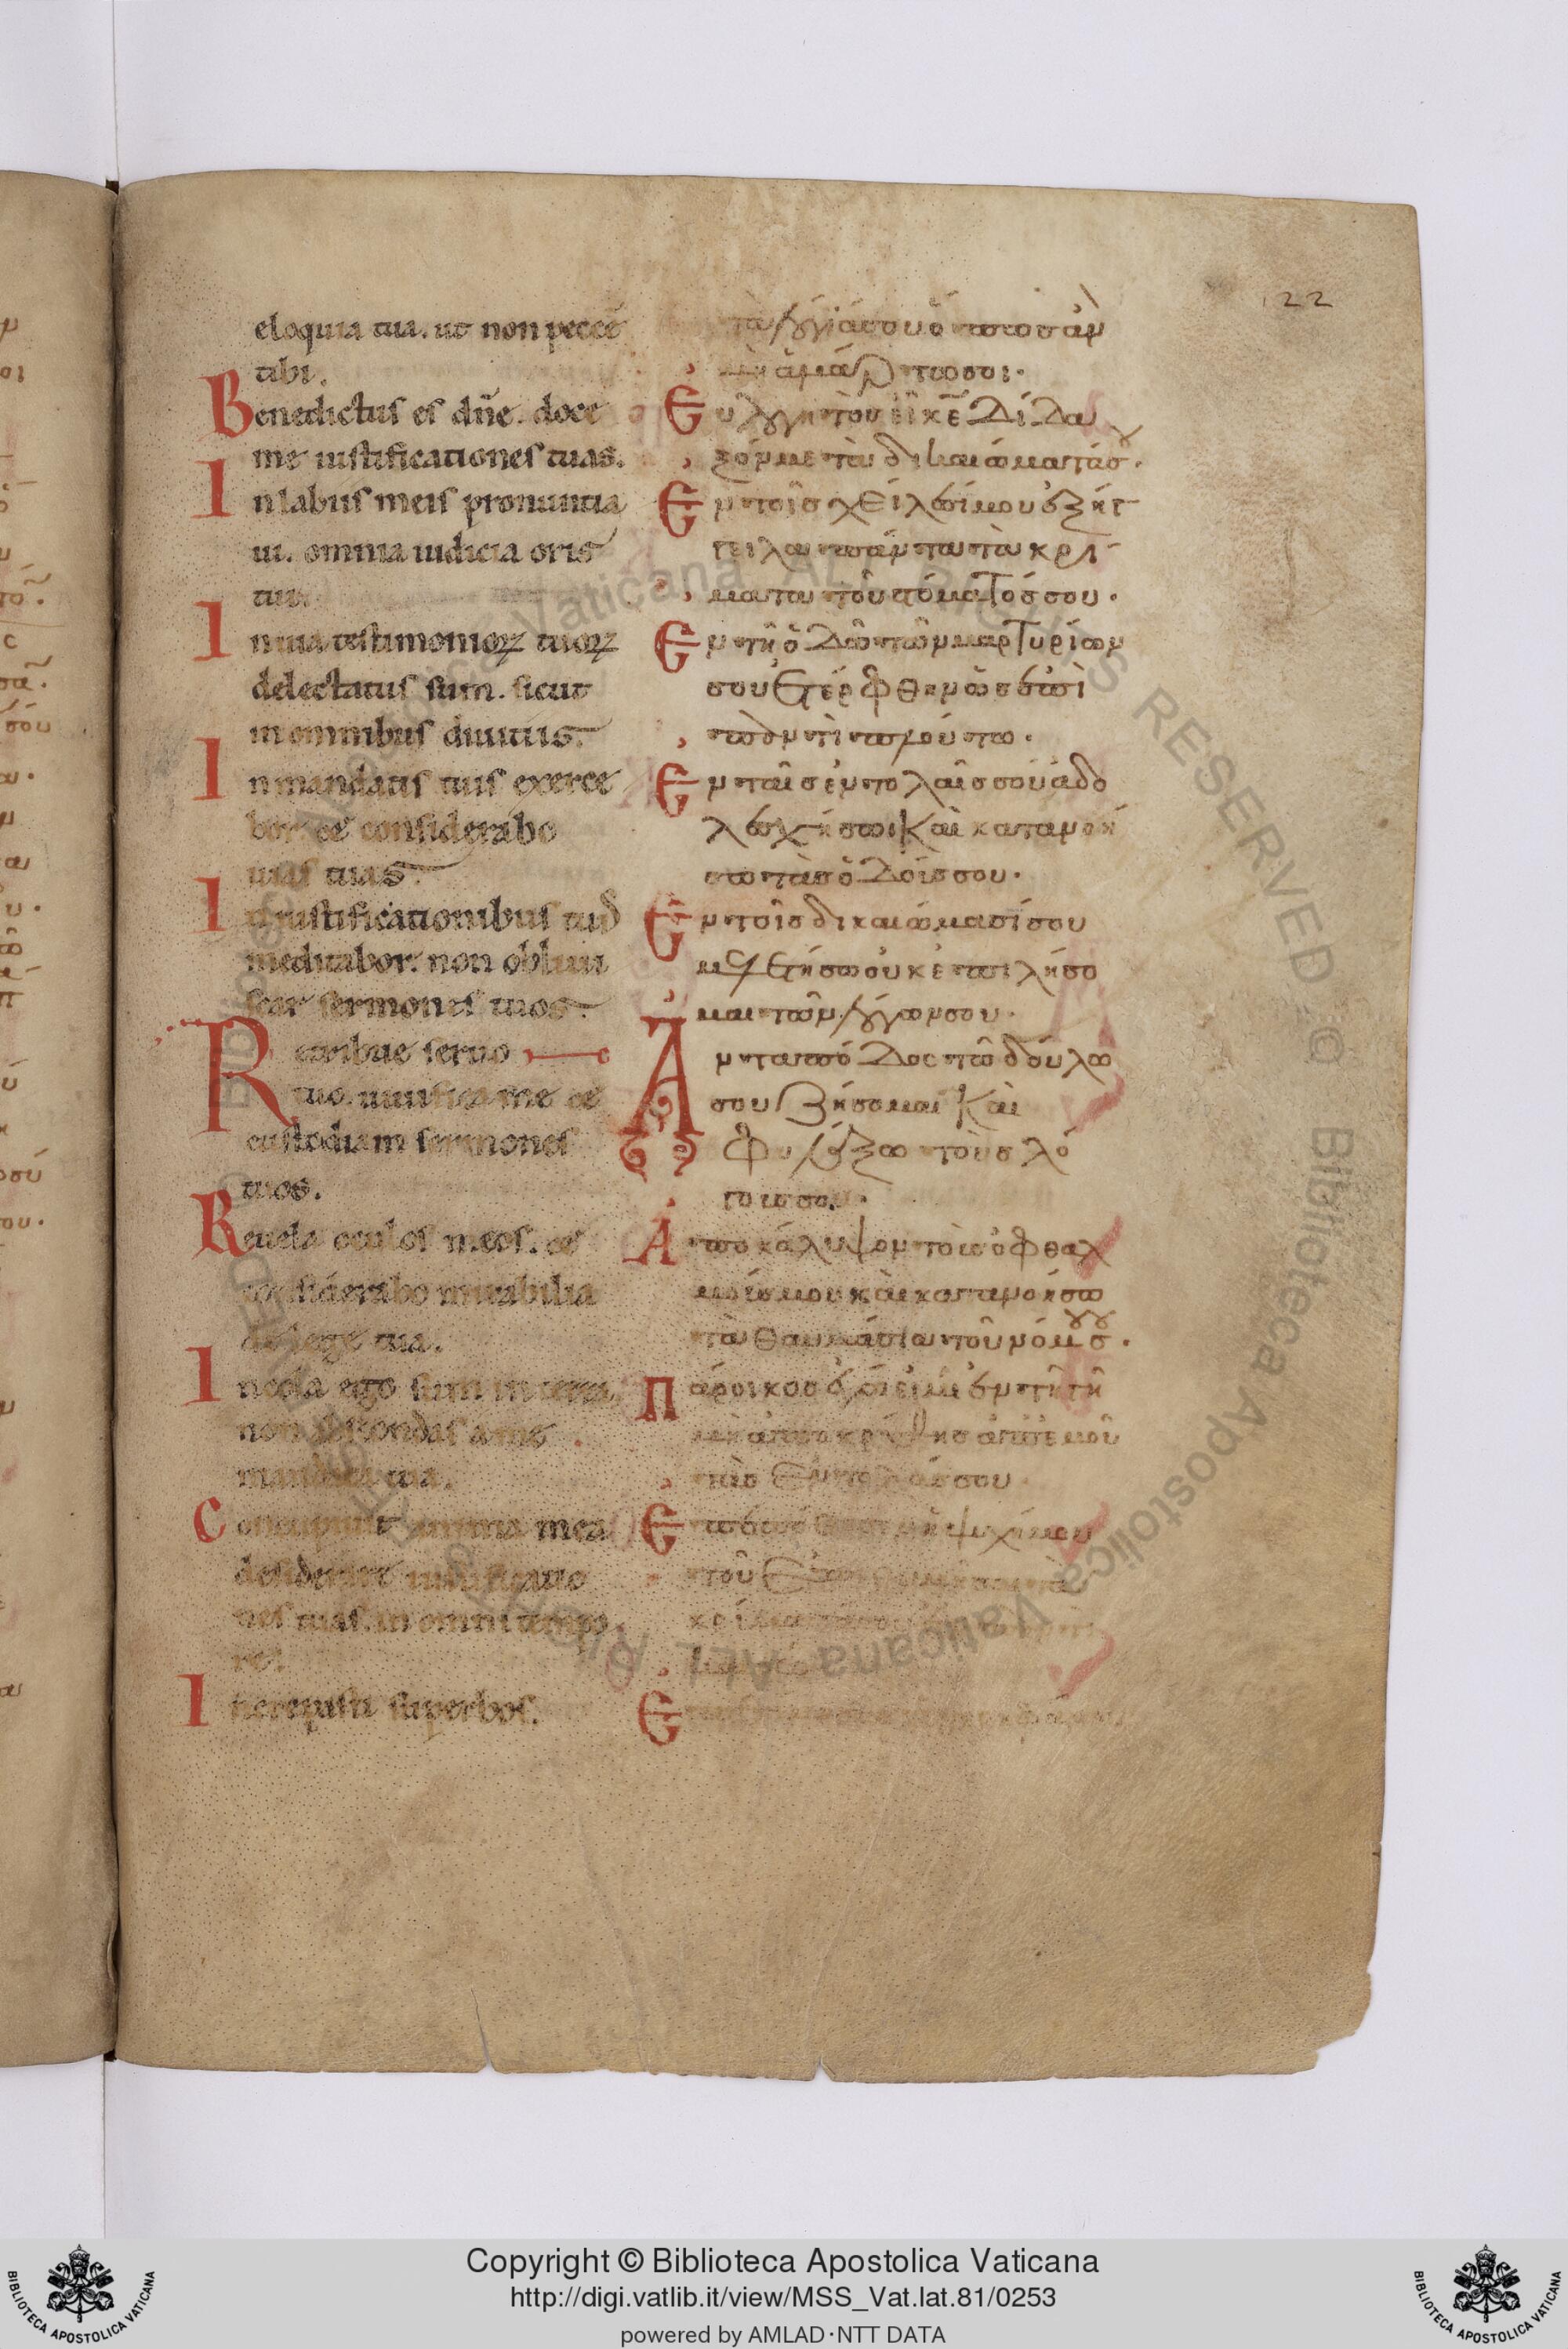 122
eloquia tua. ut non peccē
tibi.
Benedictus es dn̄e. doce
me iustificationes tuas.
In labiis meis pronuntia
ui. omnia iudicia oris
tui.
In uia testimonioꝝ tuoꝝ
delectatus sum. sicut
in omnibus diuitiis.
In mandatis tuis exerce
bor et considerabo
uias tuas.
In iustificationibus tuis
meditabor. non obliui
scar sermones tuos.
Retribue seruo
tuo. uiuifica me et
custodiam sermones
tuos.
Reuela oculos meos. et
considerabo mirabilia
de lege tua.
Incola ego sum in terra
non abscondas a me
mandata tua.
Concupiuit anima mea
desiderare iustificatio
nes tuas. in omni tempo
re.
Increpasti superbos.
τὰ λόγιά σου ὅπωσ ἀν
μὴ ἁμάρτω σοι.
Εὐλογητὸσ εἶ κ̅ε̅ δίδα
ξόν με τὰ δικαιώματά σου.
Εν τοῖσ χείλεσί μου ἐξήγ
γειλα πάντα τὰ κρί
ματα τοῦ στόματόσ σου.
Εν τῆ ὁδῶ τῶν μαρτυρίων
σου ἐτέρφθην ὡσ ἐπὶ
παντὶ πλούτω.
Εν ταῖσ ἐντολαῖσ σου ἀδο
λεσχήσω καὶ κατανοή
σω τὰσ ὁδούσ σου.
Εν τοῖσ δικαιώμασί σου
μελετήσω οὐκ ἐπιλήσο
μαι τῶν λόγων σου.
Ανταπόδοσ τῶ δούλω
σου ζήσομαι καὶ
φυλάξω τοὺσ λό
γουσ σου.
Αποκάλυψον τοὺσ ὀφθαλ
μούσ μου καὶ κατανοήσω
τὰ θαυμάσια τοῦ νόμου σου.
Πάροικοσ ἐγώ εἰμι ἐν τῆ γῆ
μὴ ἀποκρύψησ ἀπ' ἐμοῦ
τὰσ ἐντολάσ σου.
Επεπόθησεν ἡ ψυχή μου
τοῦ ἐπιθυμῆσαι τὰ
Copyright © Biblioteca Apostolica Vaticana
http://digi.vatlib.it/view/MSS_Vat.lat.81/0253
powered by AMLAD·NTT DATA